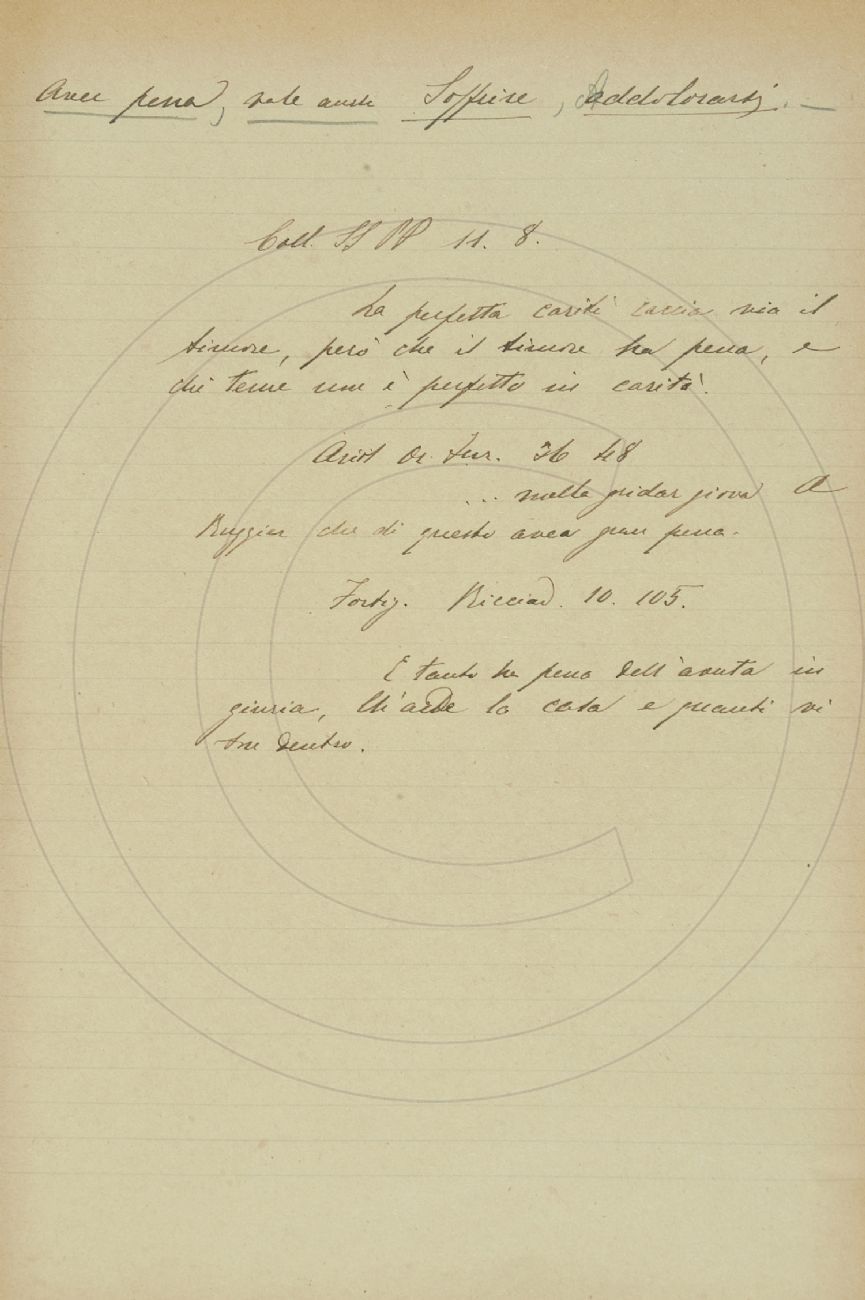 Aver pena, vale anche Soffrire, Addolorarsi. —
Coll. SS PP 11. 8.
La perfetta carità caccia via il
timore, però che il timore ha pena, e
chi teme non è perfetto in carità.
Ariost Or. Fur. 36 48
... nulla gridar giova A
Ruggier che di questo avea gran pena.
Fortig. Ricciard. 10. 105.
E tanto ha pena dell'avuta in
giuria, Ch'arde la casa e quanti vi
son dentro.